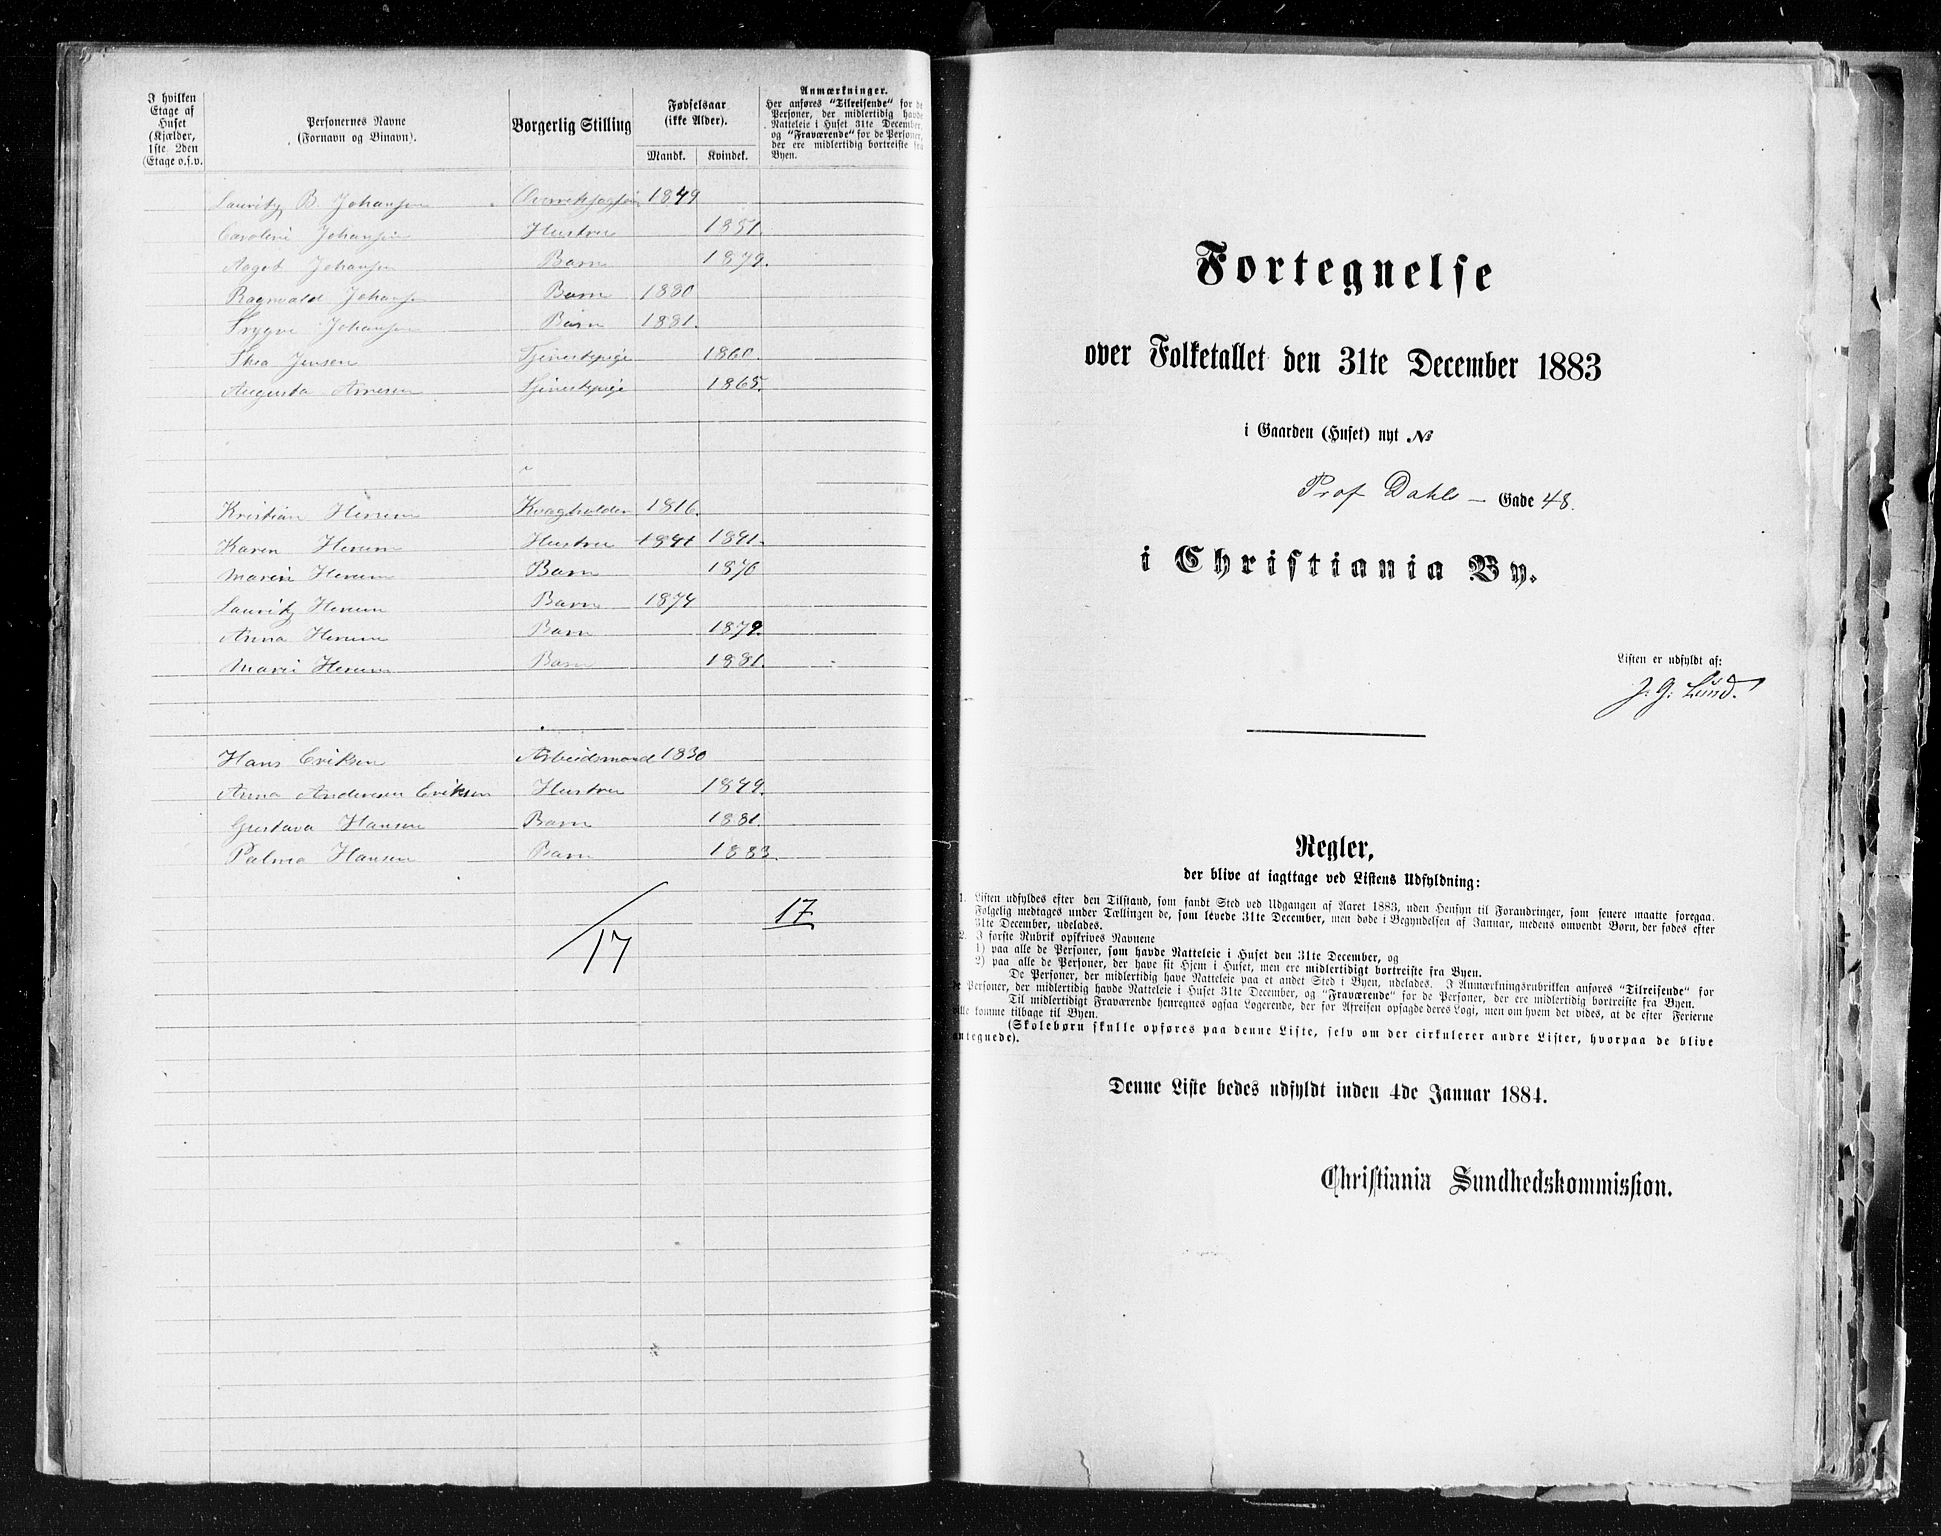 I hvilken
Etage af
Huset
(Kjælder,
1ste 2den
Etage o.s.v.
Personernes Navne
(Fornavn og Binavn).
Borgerlig Stilling
Fødselsaar
(ikke Alder).
Mandk. Kvindek.
Anmærkninger.
Her anføres "Tilreisende" for de
Personer, der midlertidig havde
Natteleie i Huset 31te December,
og "Fraværende" for de Personer,
der ere midlertidig bortreiste fra
Byen.
Lauritz B. Johansen 1849
Caroline Johansen Hustru 1851.
Aagot Johansen Barn 1879.
Ragnvald Johansen Barn 1880
Trygve Johansen Barn 1881.
Thea Jensen Tjenestepige 1860.
Augusta Arnesen Tjenestepige 1865.
Kristian Herum Kvægholder 1816.
Karen Herum Hustru 1841 1841.
Maren Herum Barn 1870
Lauritz Herum Barn 1874
Anna Herum Barn 1879.
Marie Herum Barn 1881.
Hans Eriksen Arbeidsmand 1830
Anna Andersen Eriksen Hustru 1849.
Gustava Hansen Barn 1881.
Palma Hansen Barn 1883.
17
17
Fortegnelse
over Folketallet den 31te December 1883
i Gaarden (Huset) nyt №
Prof Dahls — Gade 48.
i Christiania By.
Listen er udfyldt af:
J. G. Lund.
Regler,
der blive at iagttage ved Listens Udfyldning:
1. Listen udfyldes efter den Tilstand, som fandt Sted ved Udgangen af Aaret 1883, uden Hensyn til Forandringer, som senere maatte foregaa.
Følgelig medtages under Tællingen de, som levede 31te December, men døde i Begyndelsen af Januar, medens omvendt Børn, der fødes efter
31te December, udelades.
2. I første Rubrik opskrives Navnene
1) paa alle de Personer, som havde Natteleie i Huset den 31te December, og
2) paa alle de Personer, der have sit Hjem i Huset, men ere midlertidigt bortreiste fra Byen.
De Personer, der midlertidig have Natteleie paa et andet Sted i Byen, udelades. I Anmærkningsrubriken anføres "Tilreisende" for
de Personer, der midlertidig havde Natteleie i Huset 31te December, og "Fraværende" for de Personer, der ere midlertidig bortreiste fra Byen.
Til midlertidigt Fraværende henregnes ogsaa Logerende, der før Afreisen opsagde deres Logi, men om hvem det vides, at de efter Ferierne
ville komme tilbage til Byen.
(Skolebørn skulle opføres paa denne Liste, selv om der cirkulerer andre Lister, hvorpaa de blive
antegnede).
Denne Liste bedes udfyldt inden 4de Januar 1884.
Christiania Sundhedskommission.